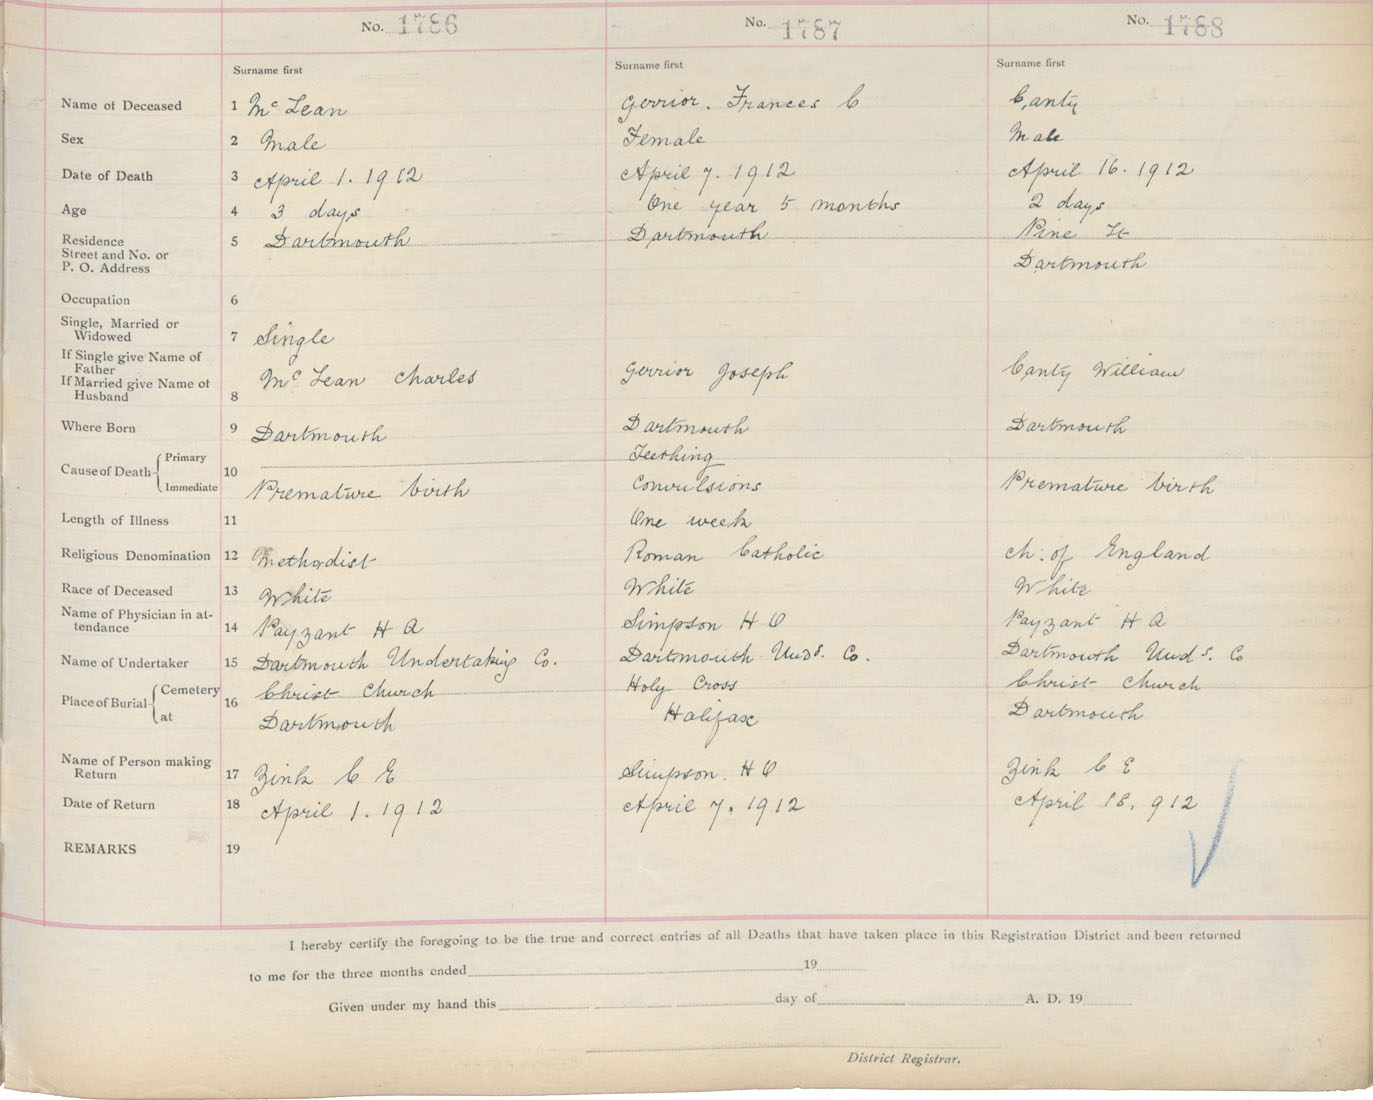 No. 1786 No. 1787 No. 1788
Surname first Surname first Surname first
Name of Deceased 1 Mc Lean Gerrior. Frances C Canty
Sex 2 Male Female Male
Date of Death 3 April 1. 1912 April 7. 1912 April 16. 1912
Age 4 3 days One year 5 months 2 days
Residence 5 Dartmouth Dartmouth Pine St
Street and No. or
P. O. Address Dartmouth
Occupation 6
Single, Married or
Widowed 7 Single
If Single give Name of
Father
If Married give Name of Mc Lean Charles Gerrior Joseph Canty William
Husband 8
Where Born 9 Dartmouth Dartmouth Dartmouth
Primary Teething
Cause of Death 10
Immediate Premature birth Convulsions Premature birth
Length of Illness 11 One week
Religious Denomination 12 Methodist Roman Catholic Ch. of England
Race of Deceased 13 White White White
Name of Physician in at-
tendance 14 Payzant H A Simpson H O Payzant H A
Name of Undertaker 15 Dartmouth Undertaking Co. Dartmouth Unds. Co. Dartmouth Unds. Co
Cemetery Christ Church Holy Cross Christ Church
Place of Burial 16
at Dartmouth Halifax Dartmouth
Name of Person making
Return 17 Zink C E Simpson. H O Zink C E
Date of Return 18 April 1. 1912 April 7. 1912 April 18. 912
REMARKS 19
I hereby certify the foregoing to be the true and correct entries of all Deaths that have taken place in this Registration District and been returned
to me for the three months ended 19
Given under my hand this day of A. D. 19
District Registrar.